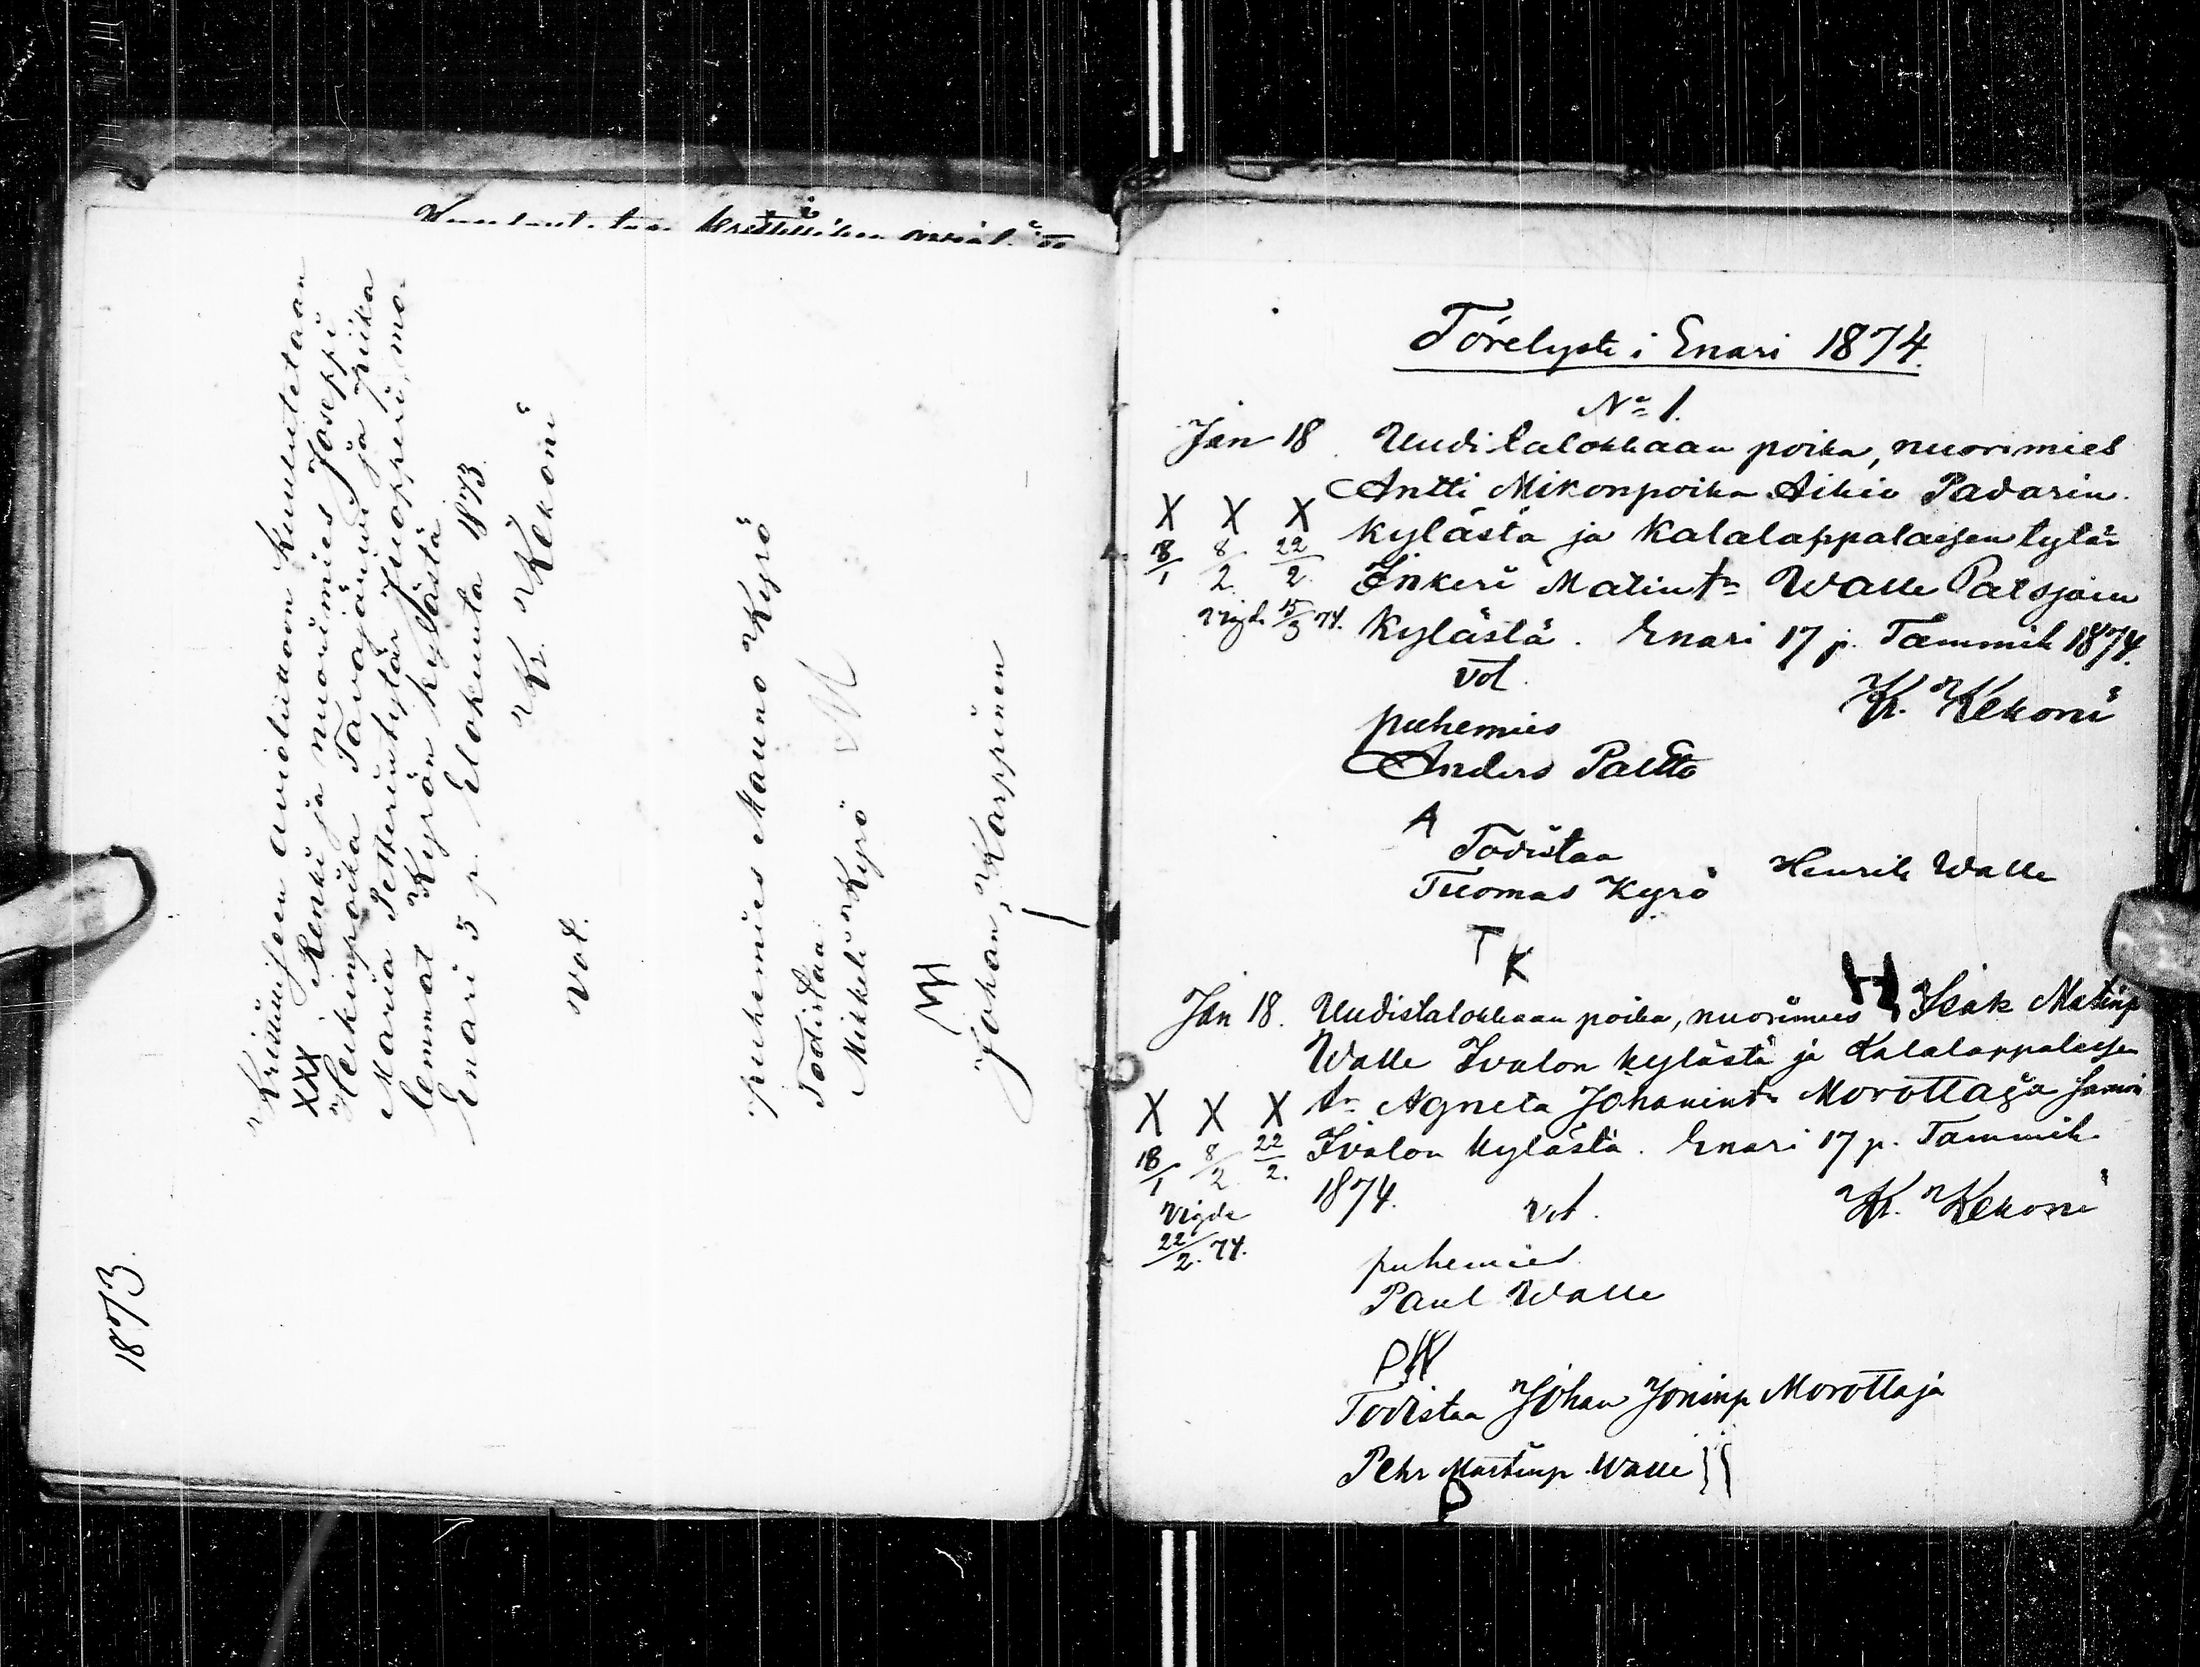 1873.
Kristilliseen avioliittoon Kuulutetaan
XXX Renki ja nuorimies Joseppi
Heikinpoika Tavajärvi ja piika
Maria Petterintytär Juopperi, mo-
lemmat Kyrön kylästä
Enari 5 p. Elokuuta 1873
Kr. Kekoni
Vol.
puhemies Mauno Kyrö
M
Todistaa
Mikkeli Kyrö
Johan Karppinen
Förelyste i Enari 1874.
No 1.
Jan 18. Uuditalokkaan poika, nuorimies
Antti Mikonpoika Aikio Padarin
X X X kylästä ja Kalalappalaisen tytär
18/1 8/2. 22/2. Inkeri Matintr Walle Patsjoen
Vigde 15/3 74. Kylästä. Enari 17 p. Tammik 1874.
Vol.
Kr. Kekoni
puhemies
Anders Paltto
A
Todistaa
Tuomas Kyrö Henrik Walle
T K
H
Jan 18. Uudistalokkaan poika, nuorimies Isak Matinp
Walle Ivalon kylästä ja Kalalappalaisen
X X X tr Agneta Johanintr Morottaja samoin
18/1 8/2 22/2. Ivalon kylästä. Enari 17 p. Tammik.
1874. Vol. Kr. Kekoni
Vigde
22/2. 74.
puhemies
Paul Walle
PW
Todistaa Johan Joninp Morottaja
Pehr Matinp Walle
P